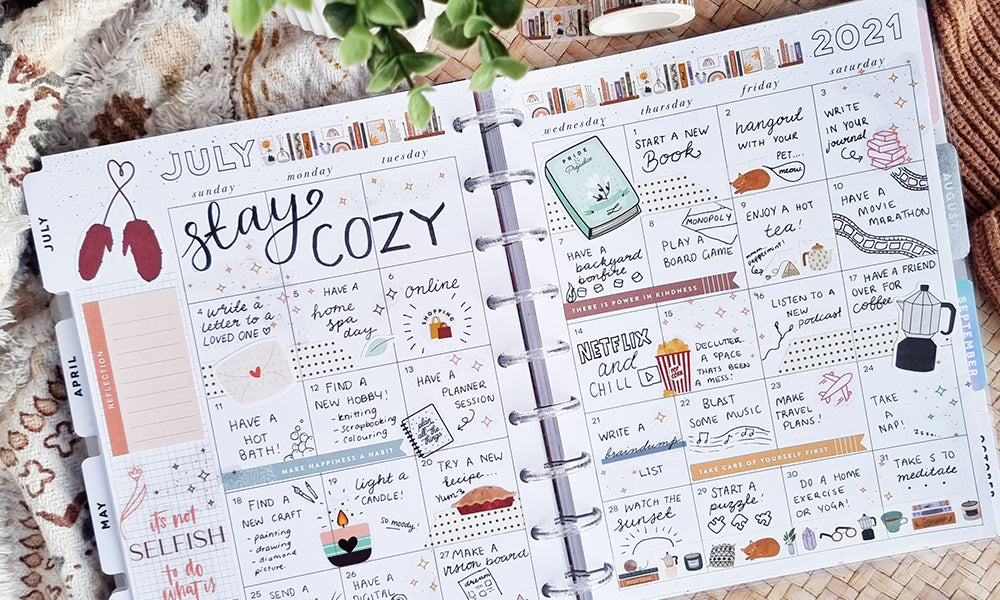 JULY
2021
sunday
monday
tuesday
wednesday
thursday
friday
saturday
stay
COZY
PRIDE
&
Prejudice
1
START A NEW
Book
2
hangout
WITH YOUR
PET...
meow
3
WRITE
IN YOUR
journal
4
write a
letter to a
LOVED ONE
5
HAVE A
home
spa
day
6
online
SHOPPING
7
HAVE A
backyard
bonfire
8
MONOPOLY
PLAY A
BOARD GAME
9
ENJOY A HOT
tea!
mmm
peppermint!
10
HAVE A
MOVIE
MARATHON
THERE IS POWER IN KINDNESS
11
HAVE A
HOT
BATH!
12
FIND A
NEW HOBBY!
- knitting
- scrapbooking
- colouring
13
HAVE A
PLANNER
SESSION
plan
all the
things
14
NETFLIX
and
CHILL
POP
CORN
15
DECLUTER
A SPACE
THATS BEEN
A MESS!
16
LISTEN TO A
NEW
podcast
17
HAVE A FRIEND
OVER FOR
coffee
MAKE HAPPINESS A HABIT
18
FIND A
NEW CRAFT
- painting
- drawing
- diamond
picture.
19
light a
CANDLE!
so moody!
20
TRY A NEW
recipe...
Yum
21
WRITE A
braindump
LIST
22
BLAST
SOME MUSIC
23
MAKE
TRAVEL
PLANS!
24
TAKE
A
NAP!
TAKE CARE OF YOURSELF FIRST
25
SEND A
26
HAVE A
DIGITAL
27
MAKE A
vision board
dream
28
WATCH THE
sunset
29
START A
puzzle!
30
DO A HOME
EXERCISE
OR YOGA!
31
TAKE 5 TO
meditate
REFLECTION
it's not
SELFISH
to do
what is
JULY
APRIL
MAY
AUGUST
SEPTEMBER